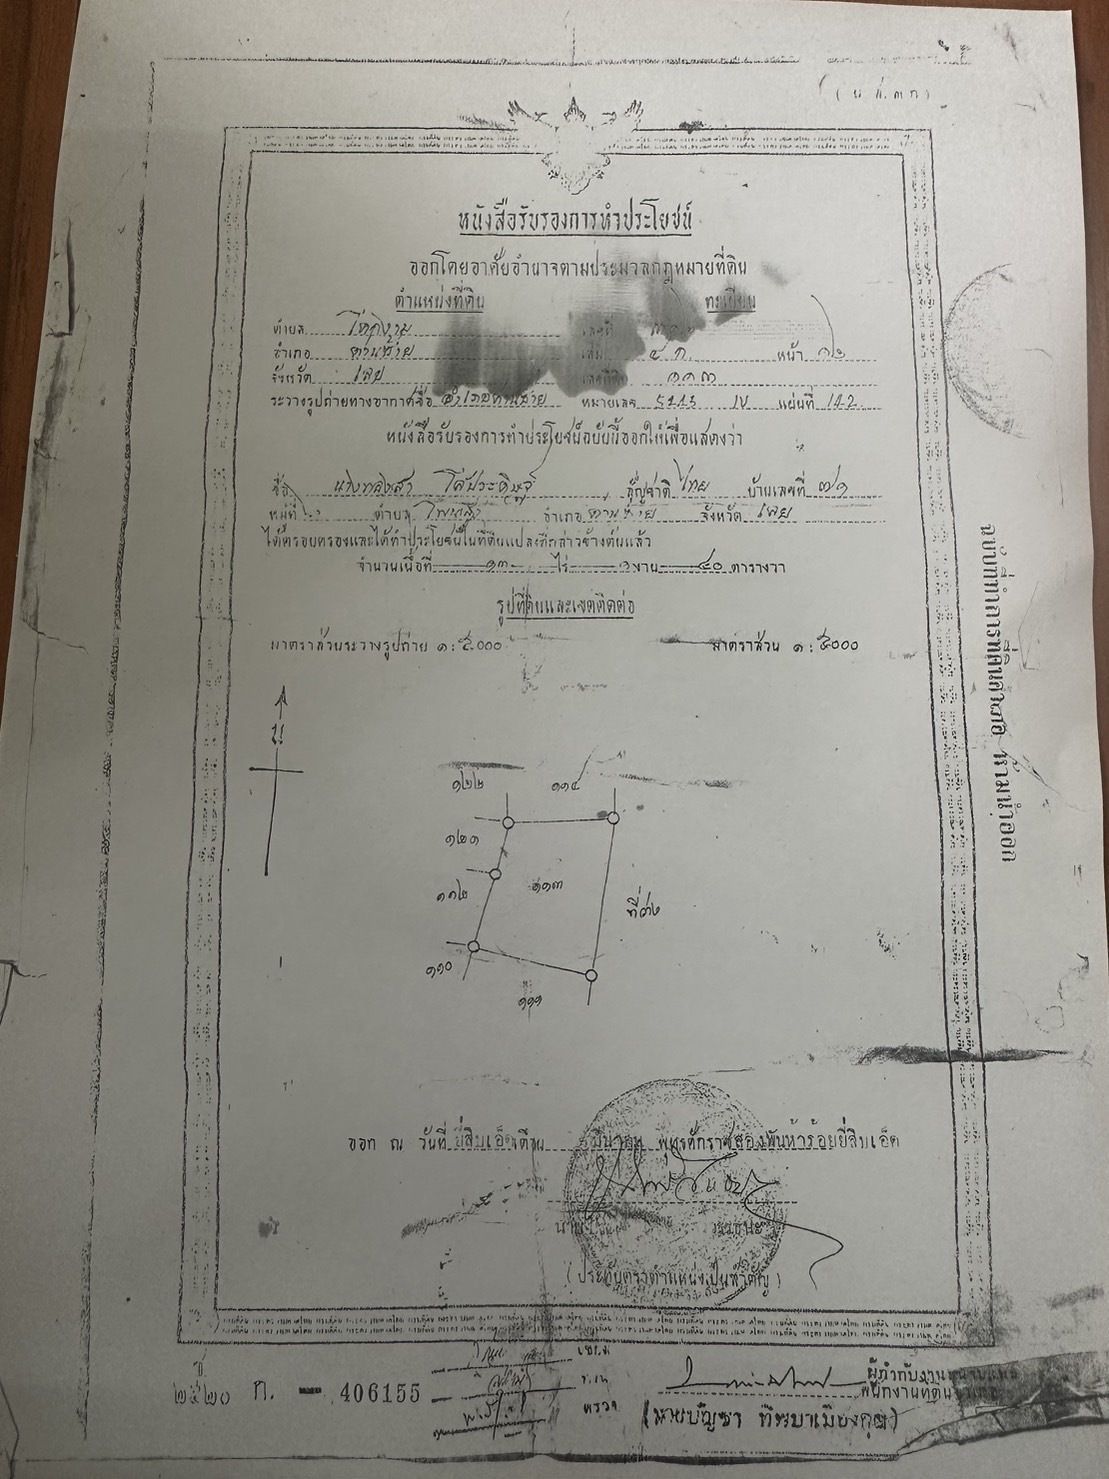 (น.ส.๓ก)
หนังสือรับรองการทำประโยชน์
ออกโดยอาศัยอำนาจตามประมวลกฎหมายที่ดิน
ตำแหน่งที่ดิน ทะเบียน
ตำบล โพนสูง เลขที่
อำเภอ ด่านซ้าย เล่ม ๕ ก. หน้า ๑๒
จังหวัด เลย เลขที่ดิน ๑๑๓
ระวางรูปถ่ายทางอากาศชื่อ อำเภอด่านซ้าย หมายเลข 5243 IV แผ่นที่ 142
หนังสือรับรองการทำประโยชน์ฉบับนี้ออกให้เพื่อแสดงว่า
ชื่อ นางทองสา โสประดิษฐ์ สัญชาติ ไทย บ้านเลขที่ ๗๑
หมู่ที่ ตำบล โพนสูง อำเภอ ด่านซ้าย จังหวัด เลย
ได้ครอบครองและได้ทำประโยชน์ในที่ดินแปลงดังกล่าวข้างต้นแล้ว
จำนวนเนื้อที่ ๑๓ ไร่ ๑ งาน ๔๐ ตารางวา
รูปที่ดินและเขตติดต่อ
มาตราส่วนระวางรูปถ่าย ๑:๕,๐๐๐ มาตราส่วน ๑:๕๐๐๐
น
๑๒๒ ๑๑๔
๑๒๑
๑๑๒ ๑๑๓
ที่ดิน
๑๑๐
๑๑๑
ฉบับที่ทำการที่ดินอำเภอ ห้ามนำออก
ออก ณ วันที่ ยี่สิบเอ็ด เดือน มีนาคม พุทธศักราชสองพันห้าร้อยยี่สิบเอ็ด
นาย
(ประทับตราตำแหน่งเป็นสำคัญ)
๒๕๒๐ ก. - 406155
ตรวจ
(นายบัญชา ทิพบาเมืองคุณ)